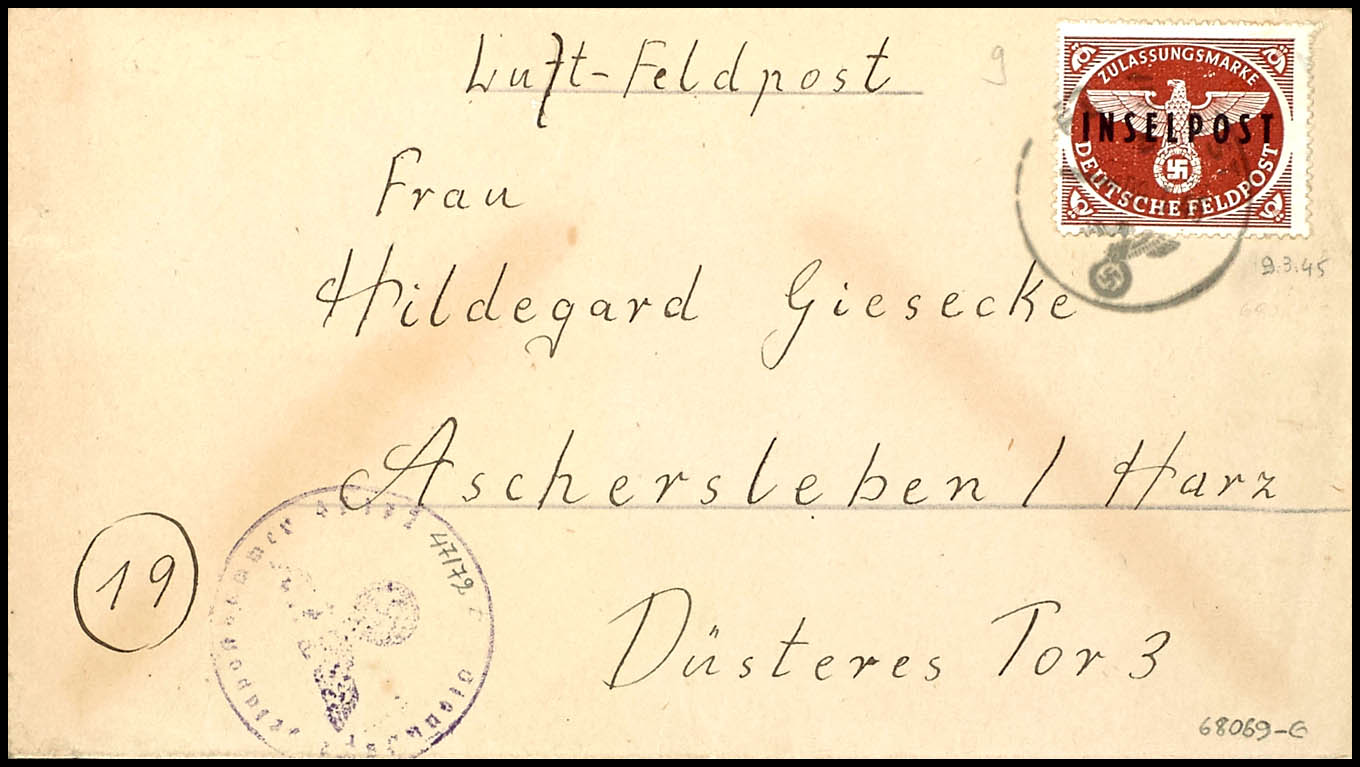 Luft-Feldpost
9
ZULASSUNGSMARKE
INSELPOST
DEUTSCHE FELDPOST
Frau
Hildegard Giesecke
9.3.45
Aschersleben / Harz
19
47179
Düsteres Tor 3
68069-G